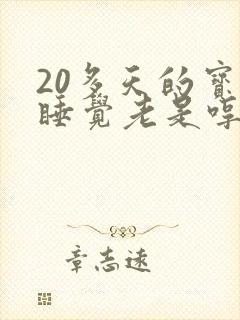 20多天的寳
睡覺老是哼
章志遠